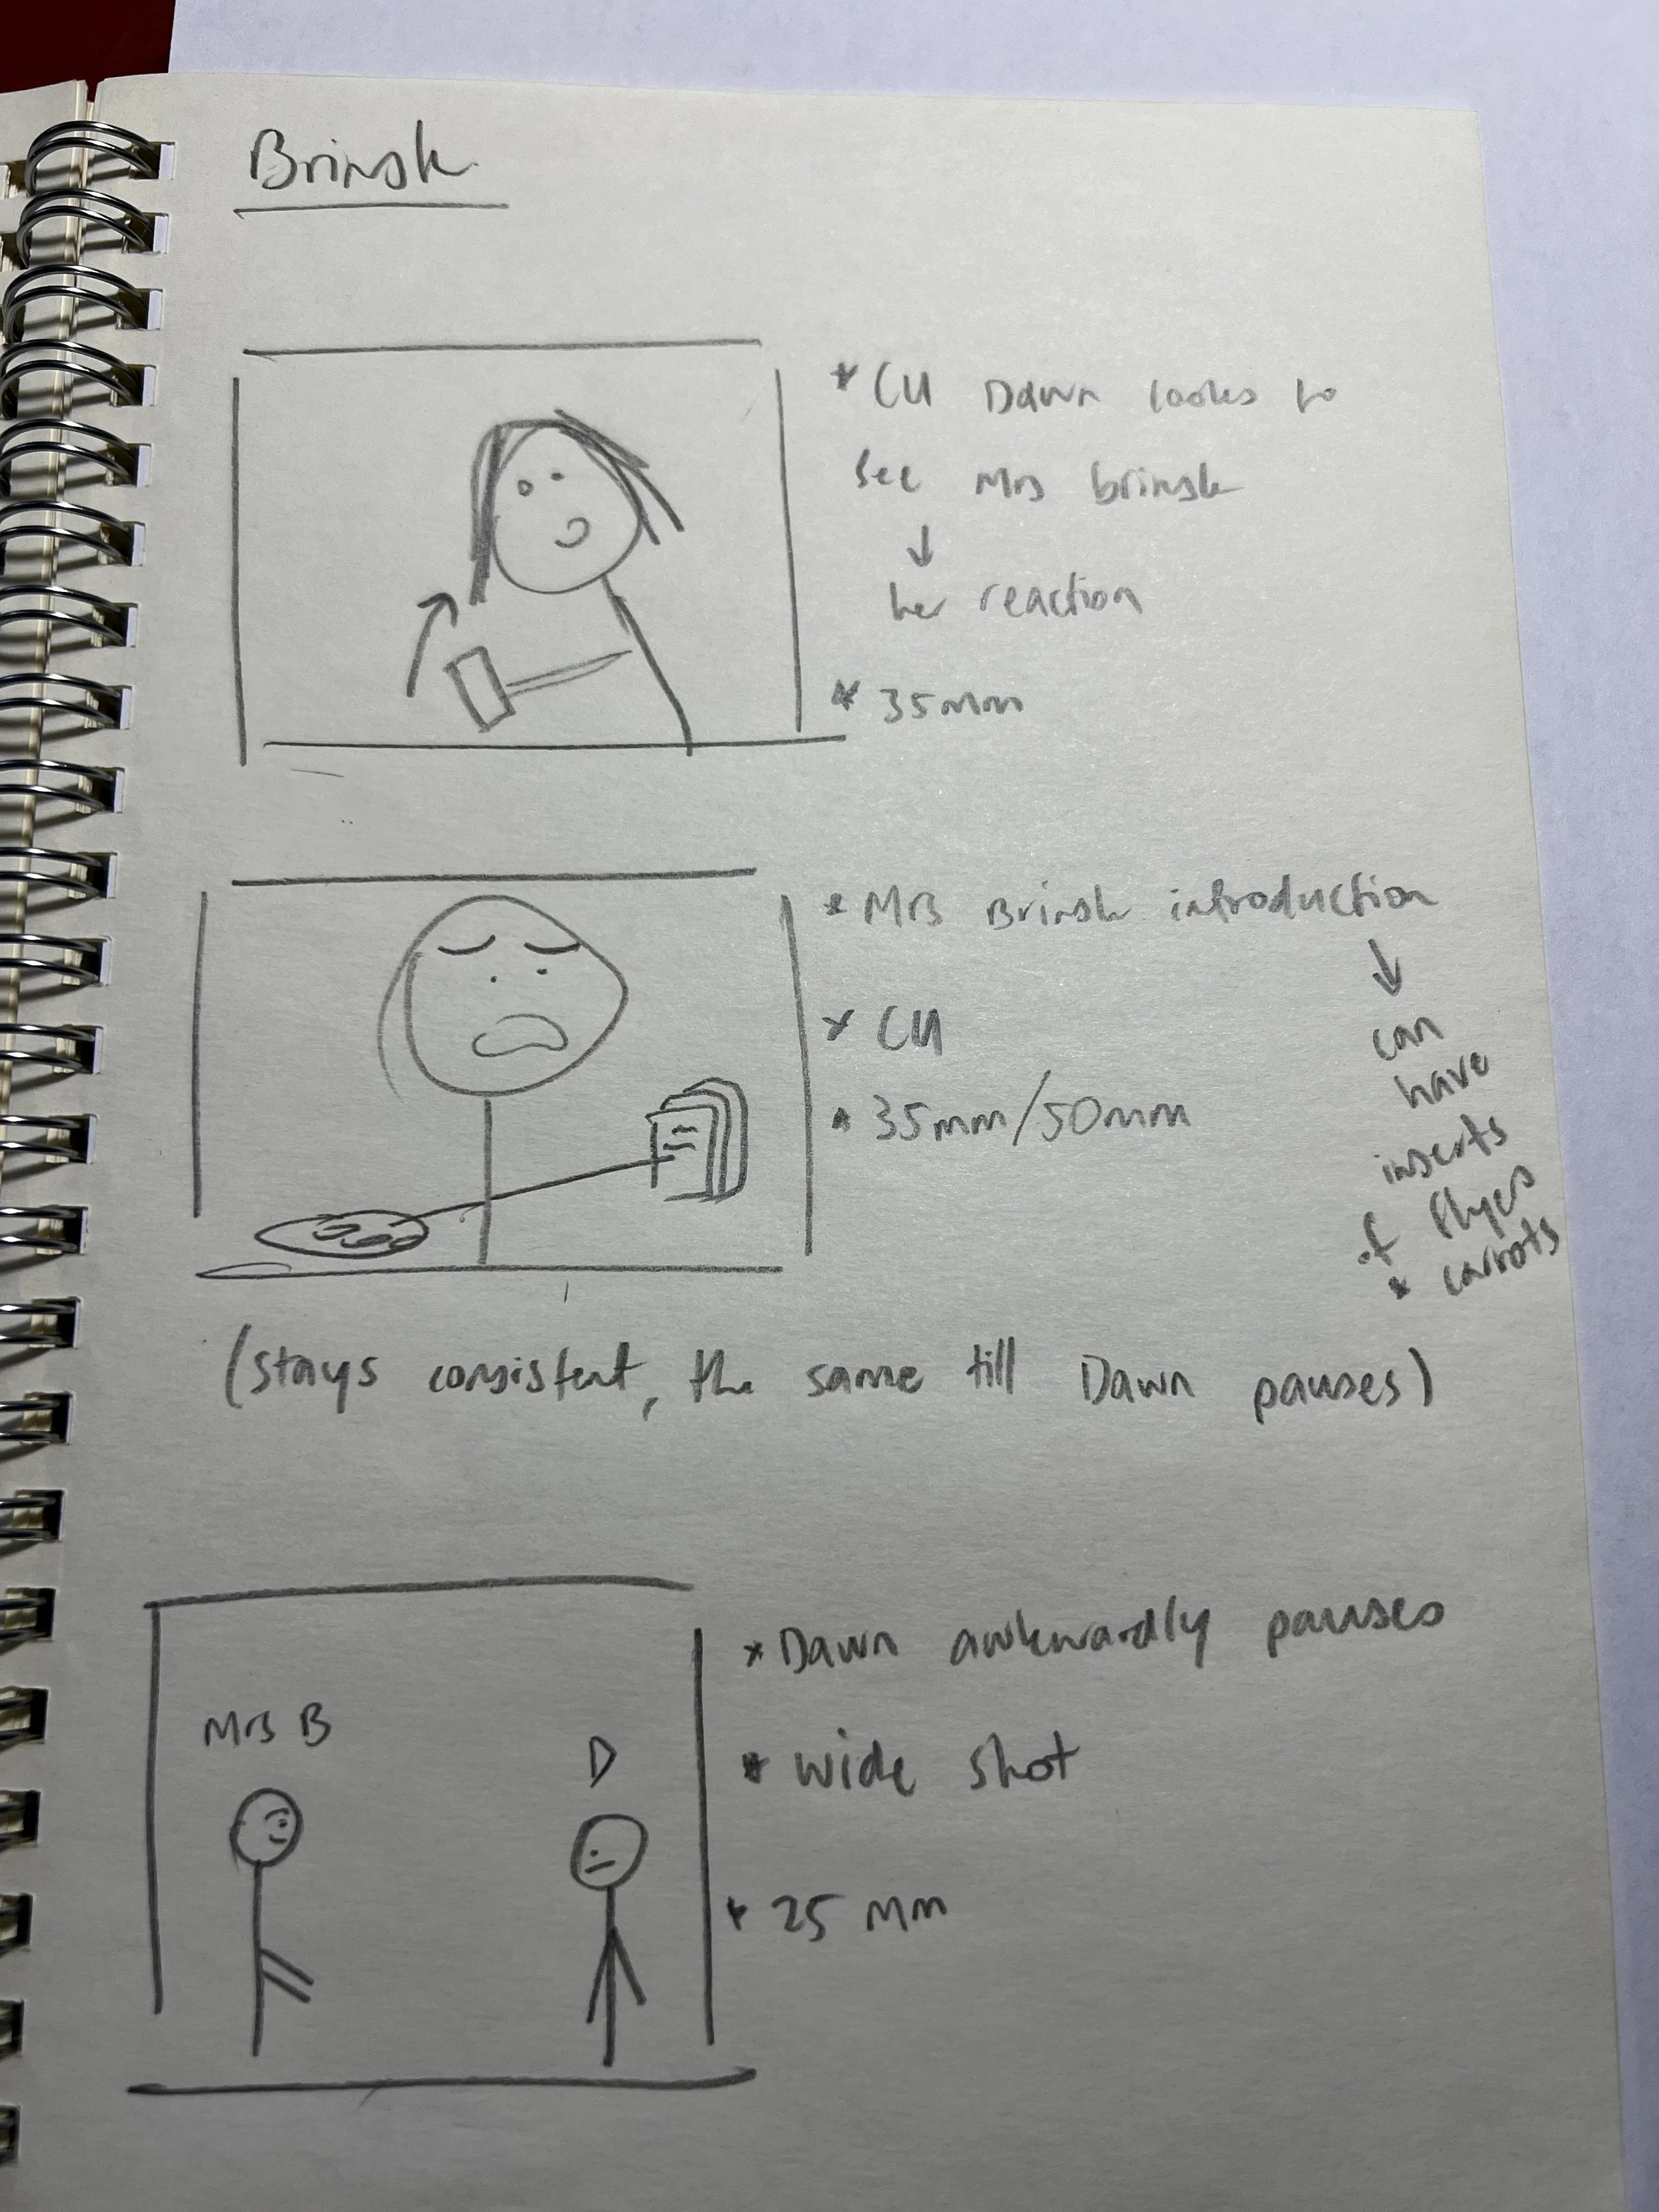 Brinsk
* CU Dawn looks to
see Mrs brinsk
↓
her reaction
* 35mm
* Mrs Brinsk introduction
↓
can
have
inserts
of flyers
* carrots
* CU
* 35mm/50mm
(stays consistent, the same till Dawn pauses)
* Dawn awkwardly pauses
Mrs B
D
* wide shot
* 25 mm